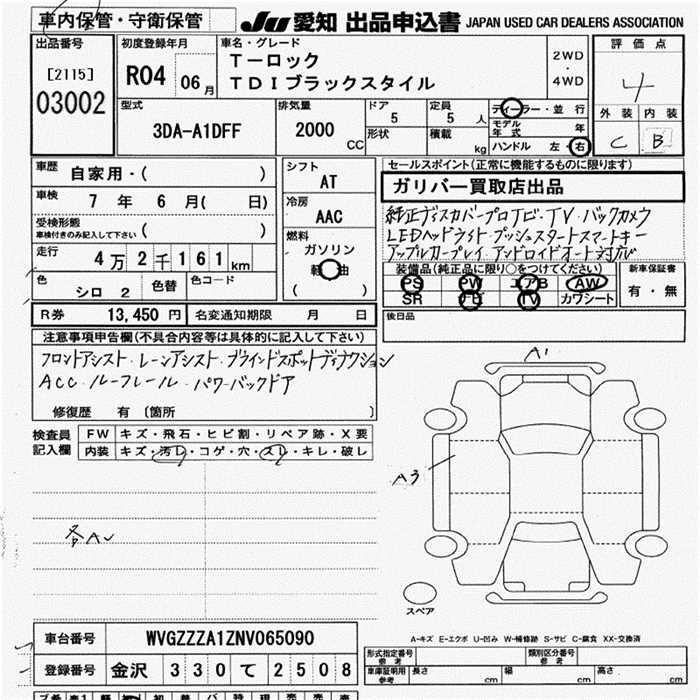 車内保管・守衛保管
JU 愛知 出品申込書 JAPAN USED CAR DEALERS ASSOCIATION
出品番号
[2115]
03002
初度登録年月
R04 06月
車名・グレード
T-ロック
TDIブラックスタイル
2WD・4WD
評価点
4
外装 内装
C B
型式
3DA-A1DFF
排気量
2000 CC
ドア 5
形状
定員 5 人
積載 kg
ディーラー・並行
モデル年式 年
ハンドル 左・右
車歴 自家用・( )
車検 7年 6月( 日)
受検形態
車検付きのみ記入して下さい ( )
走行 4万2千161km
色 シロ 2 色替 色コード
シフト
AT
冷房
AAC
燃料
ガソリン
軽油
( )
セールスポイント(正常に機能するものに限ります)
ガリバー買取店出品
純正ディスカバープロナビ・TV・バックカメラ
LEDヘッドライト・プッシュスタートスマートキー
アップルカープレイ・アンドロイドオート対応
装備品(純正品に限り○をつけてください)
PS PW エアB AW
SR ナビ TV カワシート
新車保証書
有・無
R券 13,450円 名変通知期限 月 日
後日品
注意事項申告欄(不具合内容等は具体的に記入して下さい)
フロントアシスト・レーンアシスト・ブラインドスポットディテクション
ACC・ルーフレール・パワーバックドア
修復歴 有 〔箇所 〕
検査員記入欄
FW キズ・飛石・ヒビ割・リペア跡・X要
内装 キズ・汚レ・コゲ・穴・スレ・キレ・破レ
各AU
A1
A3
スペア
A-キズ E-エクボ U-凹み W-補修跡 S-サビ C-腐食 XX-交換済
車台番号 WVGZZZA1ZNV065090
登録番号 金沢 330 て 2508
形式指定番号 参考
類別区分番号 参考
車庫証明用 参考 長さ cm 幅 cm 高さ cm